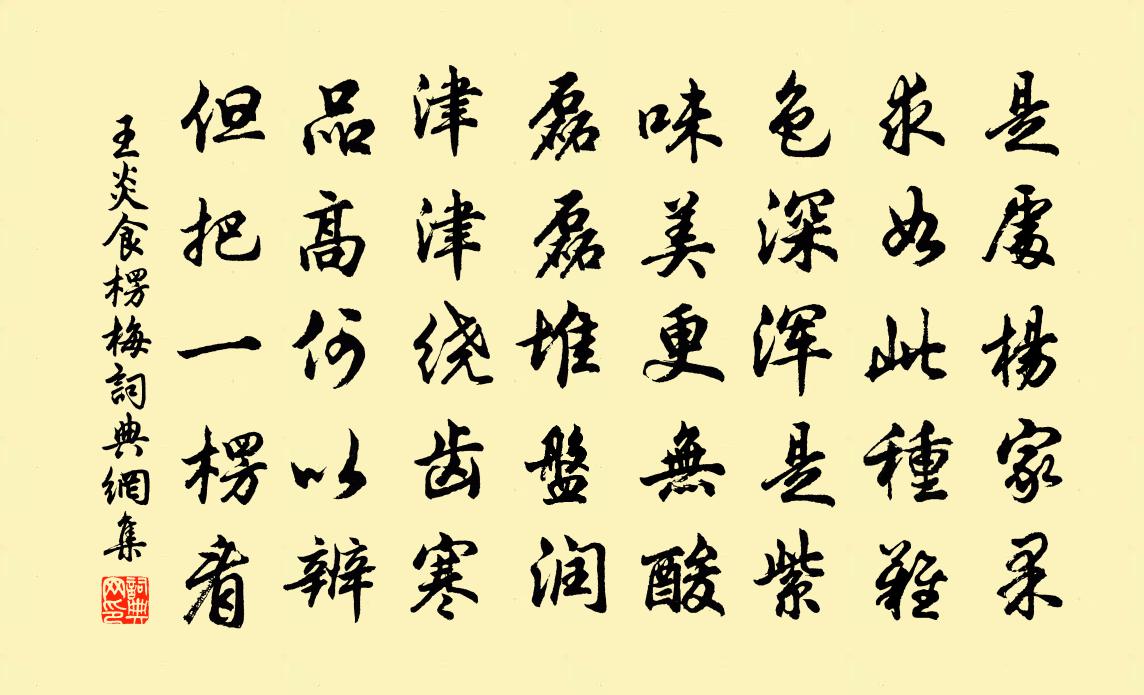 是處楊家果
求如此種難
色深浑是紫
味美更無酸
磊磊堆盤润
津津绕齿寒
品高何以辨
但把一楞看
王炎食楞梅詞典網集
詞典网印